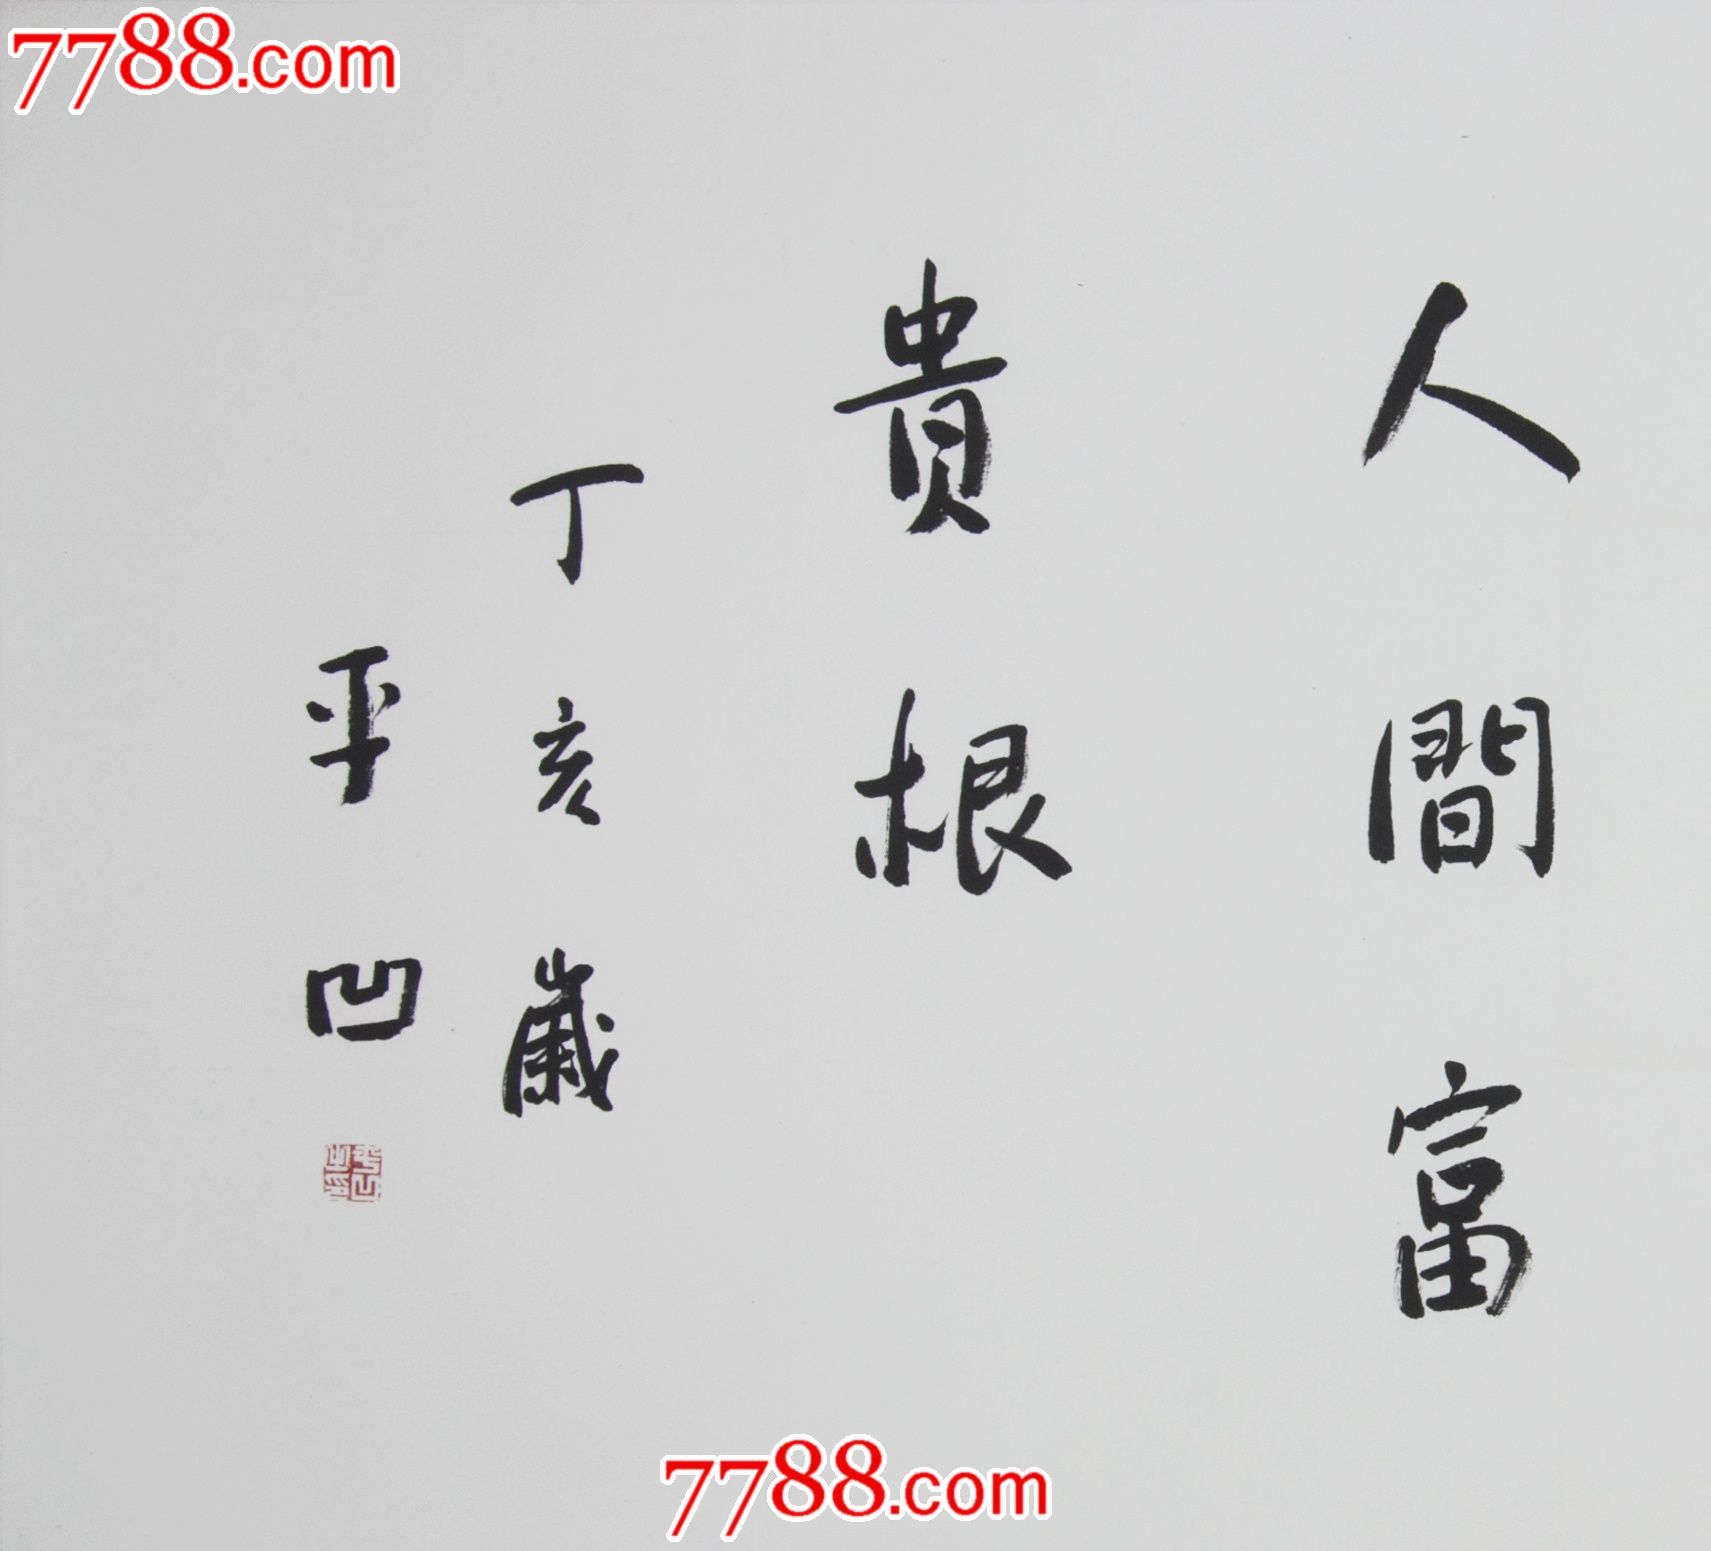 7788.com
人間富
貴根
丁亥歲
平凹
7788.com